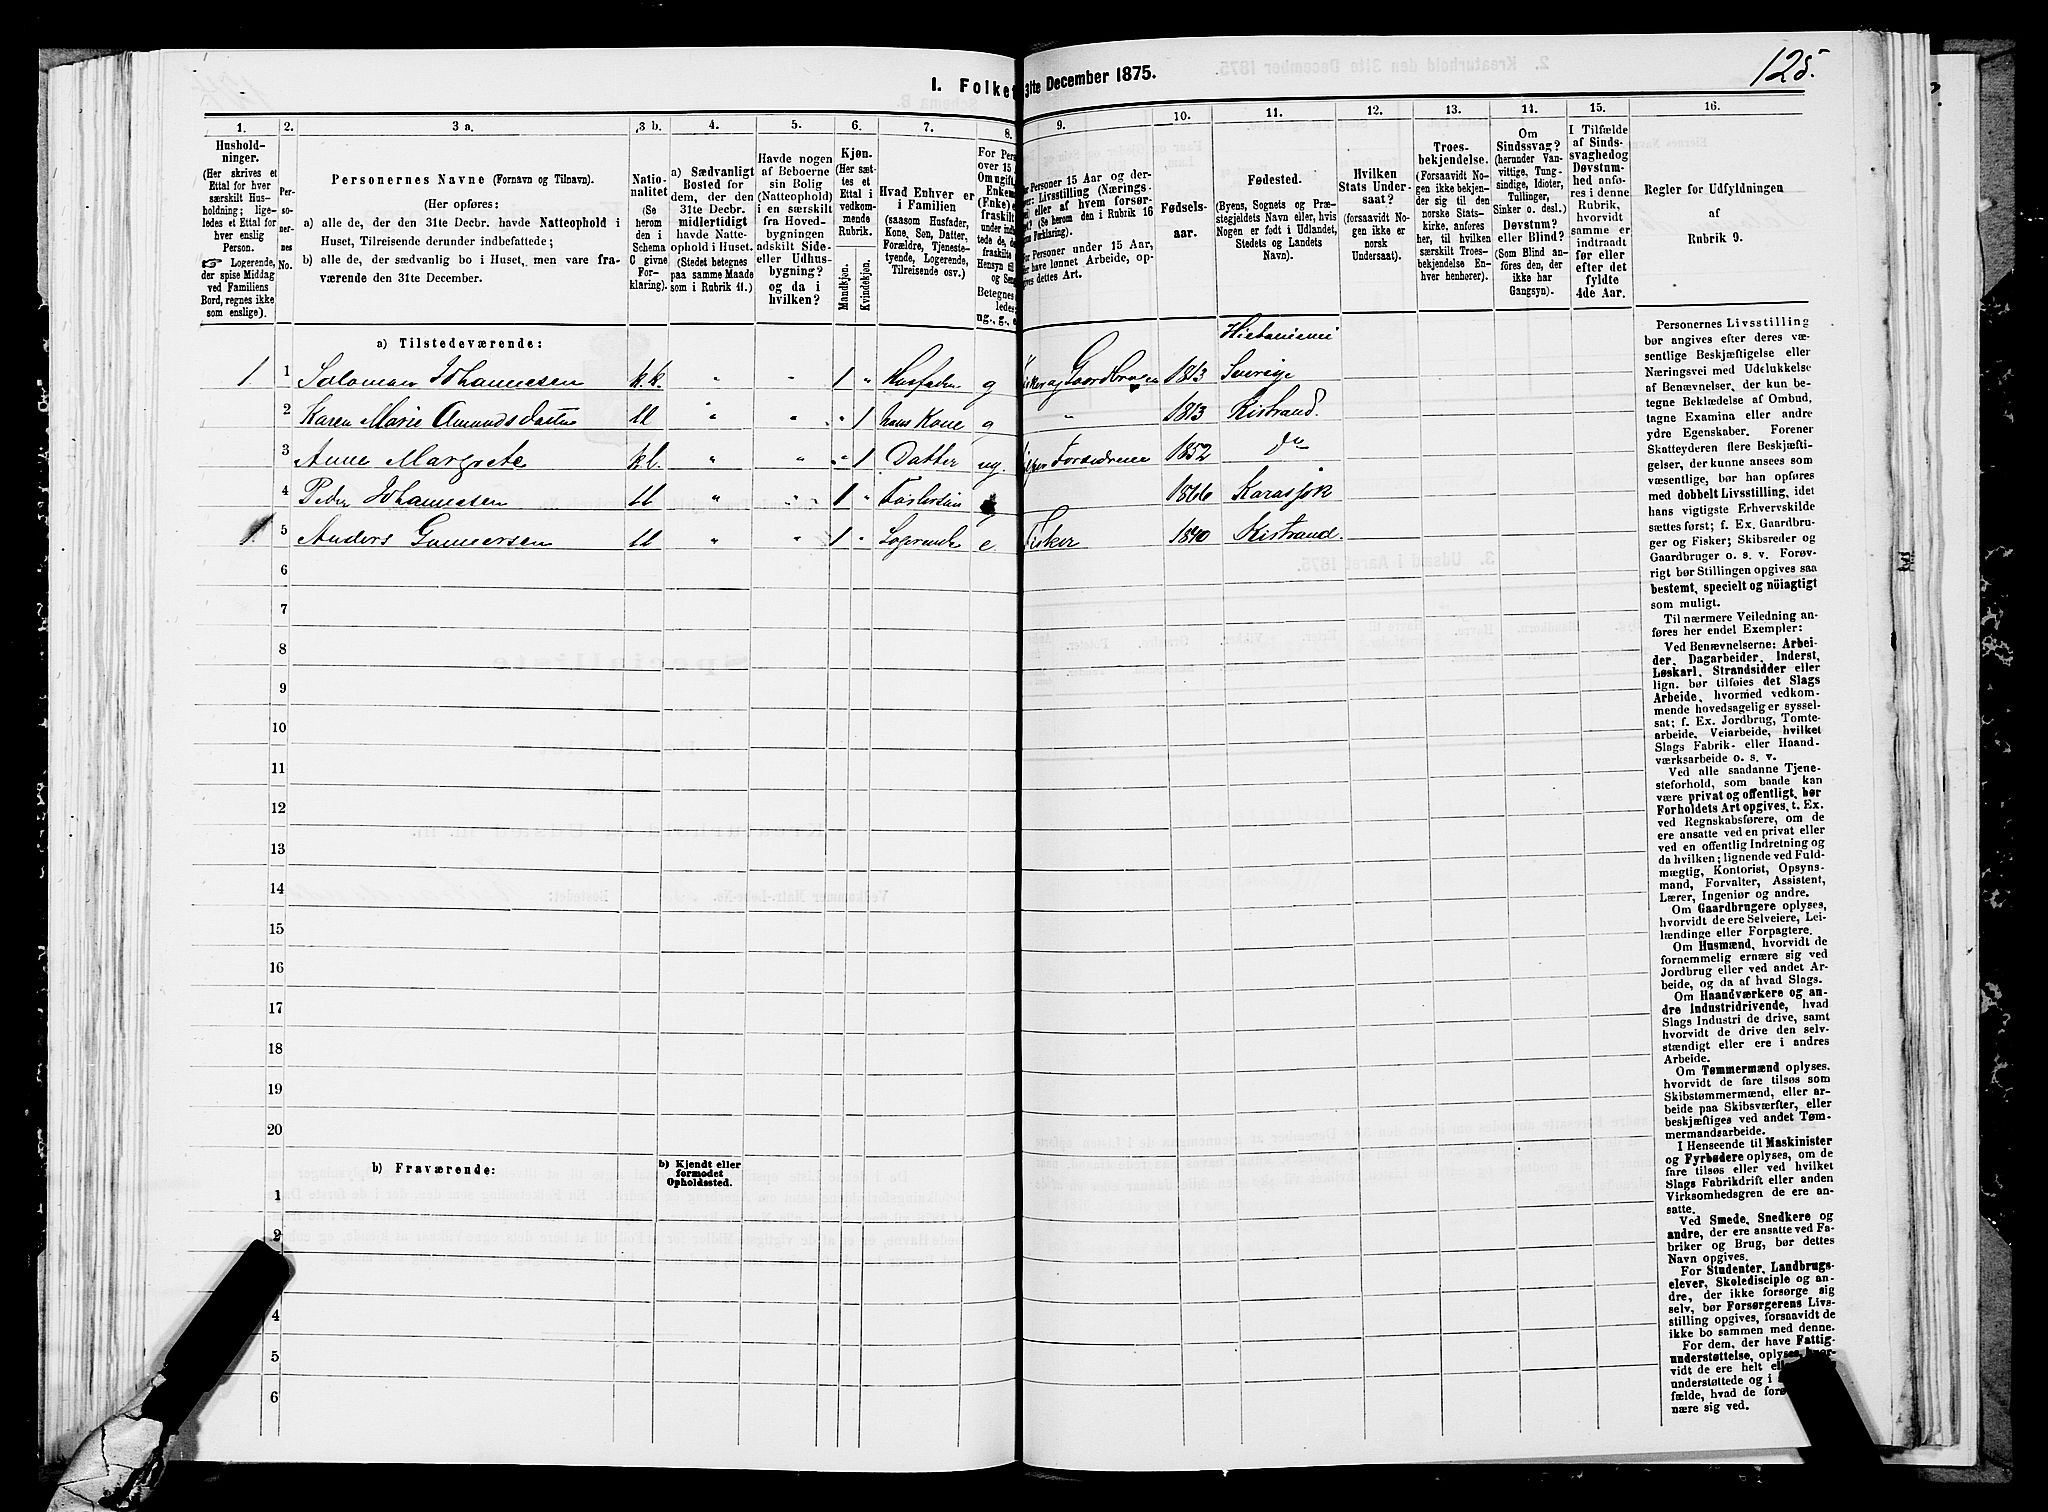 125.
I. Folket
31te December 1875.
1. 2. 3 a. 3 b. 4. 5. 6. 7. 8. 9. 10. 11. 12. 13. 14. 15. 16.
Hushold-
ninger.
(Her skrives et
Ettal for hver
særskilt Hus-
holdning; lige-
ledes et Ettal for
hver enslig
Person.
☞ Logerende,
der spise Middag
ved Familiens
Bord, regnes ikke
som enslige).
Per-
so-
ner-
nes
No.
Personernes Navne (Fornavn og Tilnavn).
(Her opføres:
a) alle de, der den 31te Decbr. havde Natteophold i
Huset, Tilreisende derunder indbefattede;
b) alle de, der sædvanlig bo i Huset, men vare fra-
værende den 31te December.
Natio-
nalitet
(Se
herom
den i
Schema
C givne
For-
klaring).
a) Sædvanligt
Bosted for
dem, der den
31te Decbr.
midlertidigt
havde Natte-
ophold i Huset.
(Stedet betegnes
paa samme Maade
som i Rubrik 11.)
Havde nogen
af Beboerne
sin Bolig
(Natteophold)
i en særskilt
fra Hoved-
bygningen
adskilt Side-
eller Udhus-
bygning?
og da i
hvilken?
Kjøn.
(Her sæt-
tes et
Ettal i
vedkom-
mende
Rubrik.
Mandkjøn.
Kvindekjøn.
Hvad Enhver er
i Familien
(saasom Husfader,
Kone, Søn, Datter,
Forældre, Tjeneste-
tyende, Logerende,
Tilreisende osv.)
Fødsels-
aar.
Fødested.
(Byens, Sognets og Præ-
stegjeldets Navn eller, hvis
Nogen er født i Udlandet,
Stedets og Landets
Navn).
Hvilken
Stats Under-
saat?
(forsaavidt No-
gen ikke er
norsk
Undersaat).
Troes-
bekjendelse.
(Forsaavidt No-
gen ikke bekjen-
der sig til den
norske Stats-
kirke, anføres
her, til hvilken
særskilt Troes-
bekjendelse En-
hver henhører).
Om
Sindssvag?
(herunder Van-
vittige, Tung-
sindige, Idioter,
Tullinger,
Sinker o. desl.)
Døvstum?
eller Blind?
(Som Blind an-
føres den, der
ikke har
Gangsyn).
I Tilfælde
af Sinds-
svaghedog
Døvstum-
hed anfø-
res i denne
Rubrik,
hvorvidt
samme er
indtraadt
før eller
efter det
fyldte
4de Aar.
Regler for Udfyldningen
af
Rubrik 9.
a) Tilstedeværende:
Hietaniemi
1. 1 Salomon Johannesen k.k. " " 1 " Husfader g Gaardbruger 1813 Sverige
2 Karen Marie Amundsdatter ll " " " 1 hans Kone g " 1813 Kistrand.
3 Anne Margrete k.l. " " " 1 Datter ug. Forældrene 1852 do
4 Peder Johannesen ll " " 1 " 1866 Karasjok
1. 5 Anders ll " " 1 " Logerende e Fisker 1840 Kistrand.
6
7
8
9
10
11
12
13
14
15
16
17
18
19
20
b) Fraværende:
b) Kjendt eller
formodet
Opholdssted.
1
2
4
5
6
Personernes Livsstilling
bør angives efter deres væ-
sentlige Beskjæftigelse eller
Næringsvei med Udelukkelse
af Benævnelser, der kun be-
tegne Beklædelse af Ombud,
tagne Examina eller andre
ydre Egenskaber. Forener
Skatteyderen flere Beskjæfti-
gelser, der kunne ansees som
væsentlige, bør han opføres
med dobbelt Livsstilling, idet
hans vigtigste Erhvervskilde
sættes først; f. Ex. Gaardbru-
ger og Fisker; Skibsreder og
Gaardbruger o. s. v. Forøv-
rigt bør Stillingen opgives saa
bestemt, specielt og nöiagtigt
som muligt.
Til nærmere Veiledning an-
føres her endel Exempler:
Ved Benævnelserne: Arbei-
der, Dagarbeider, Inderst,
Løskarl, Strandsidder eller
lign. bør tilføies det Slags
Arbeide, hvormed vedkom-
mende hovedsagelig er syssel-
sat; f. Ex. Jordbrug, Tomte-
arbeide, Veiarbeide, hvilket
Slags Fabrik- eller Haand-
værksarbeide o. s. v.
Ved alle saadanne Tjene-
steforhold, som baade kan
være privat og offentligt, bør
Forholdets Art opgives, t. Ex.
ved Regnskabsførere, om de
ere ansatte ved en privat eller
ved en offentlig Indretning og
da hvilken; lignende ved Fuld-
mægtig, Kontorist, Opsyns-
mand, Forvalter, Assistent,
Lærer, Ingeniør og andre.
Om Gaardbrugere oplyses,
hvorvidt de ere Selveiere, Lei-
lændinge eller Forpagtere.
Om Husmænd, hvorvidt de
fornemmelig ernære sig ved
Jordbrug eller ved andet Ar-
beide, og da af hvad Slags.
Om Haandværkere og an-
dre Industridrivende, hvad
Slags Industri de drive, samt
hvorvidt de drive den selv-
stændigt eller ere i andres
Arbeide.
Om Tømmermænd oplyses,
hvorvidt de fare tilsøs som
Skibstømmermænd, eller ar-
beide paa Skibsværfter, eller
beskjæftiges ved andet Tøm-
mermandsarbeide.
I Henseende til Maskinister
og Fyrbødere oplyses, om de
fare tilsøs eller ved hvilket
Slags Fabrikdrift eller anden
Virksomhedsgren de ere an-
satte.
Ved Smede, Snedkere og
andre, der ere ansatte ved Fa-
briker og Brug, bør dettes
Navn opgives.
For Studenter, Landbrugs-
elever, Skoledisciple og an-
dre, der ikke forsørge sig
selv, bør Forsørgerens Livs-
stilling opgives, forsaavidt de
ikke bo sammen med denne.
For dem, der have Fattig-
understøttelse, oplyses, hvor-
vidt de ere helt
understøttede og i
fælde, hvad de
nære sig ved.